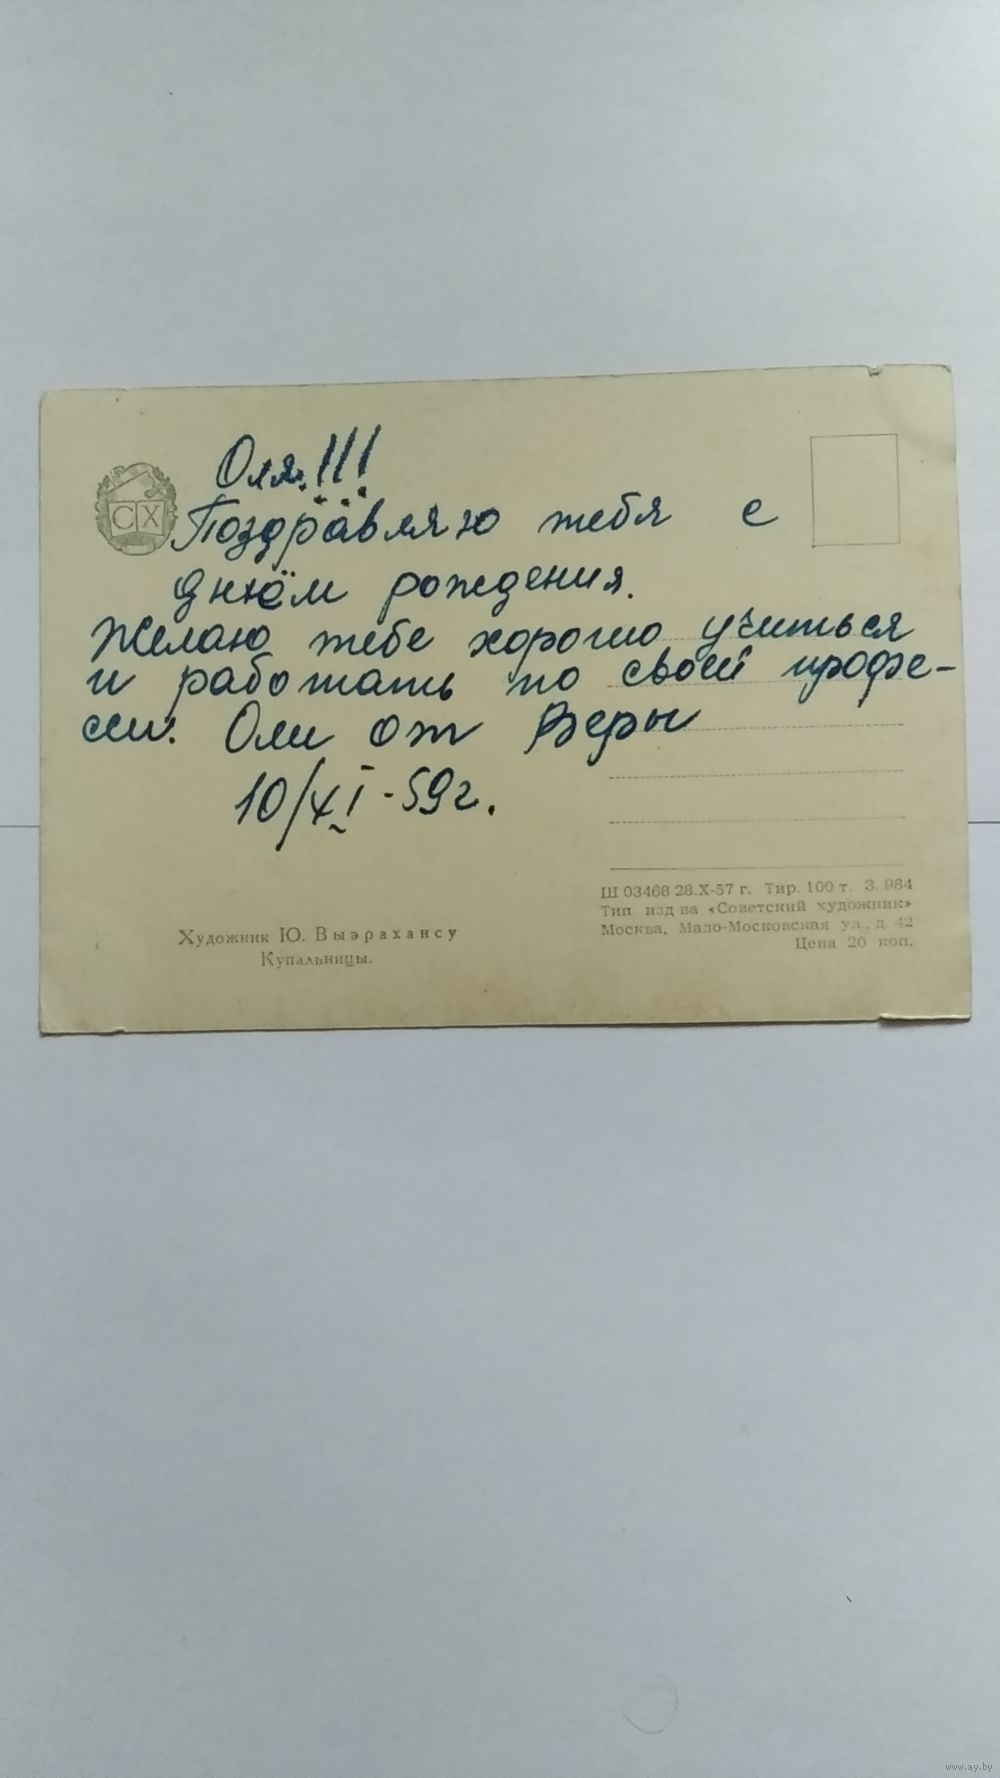 Оля.!!!
Поздравляю тебя с
днём рождения.
Желаю тебе хорошо учиться
и работать по своей профе-
сси. Оли от Веры
10/XI-59г.
СХ
Художник Ю. Выэрахансу
Купальницы.
Ш 03468 28.X-57 г. Тир. 100 т. З. 984
Тип. изд-ва «Советский художник»
Москва, Мало-Московская ул., д. 42
Цена 20 коп.
www.ay.by